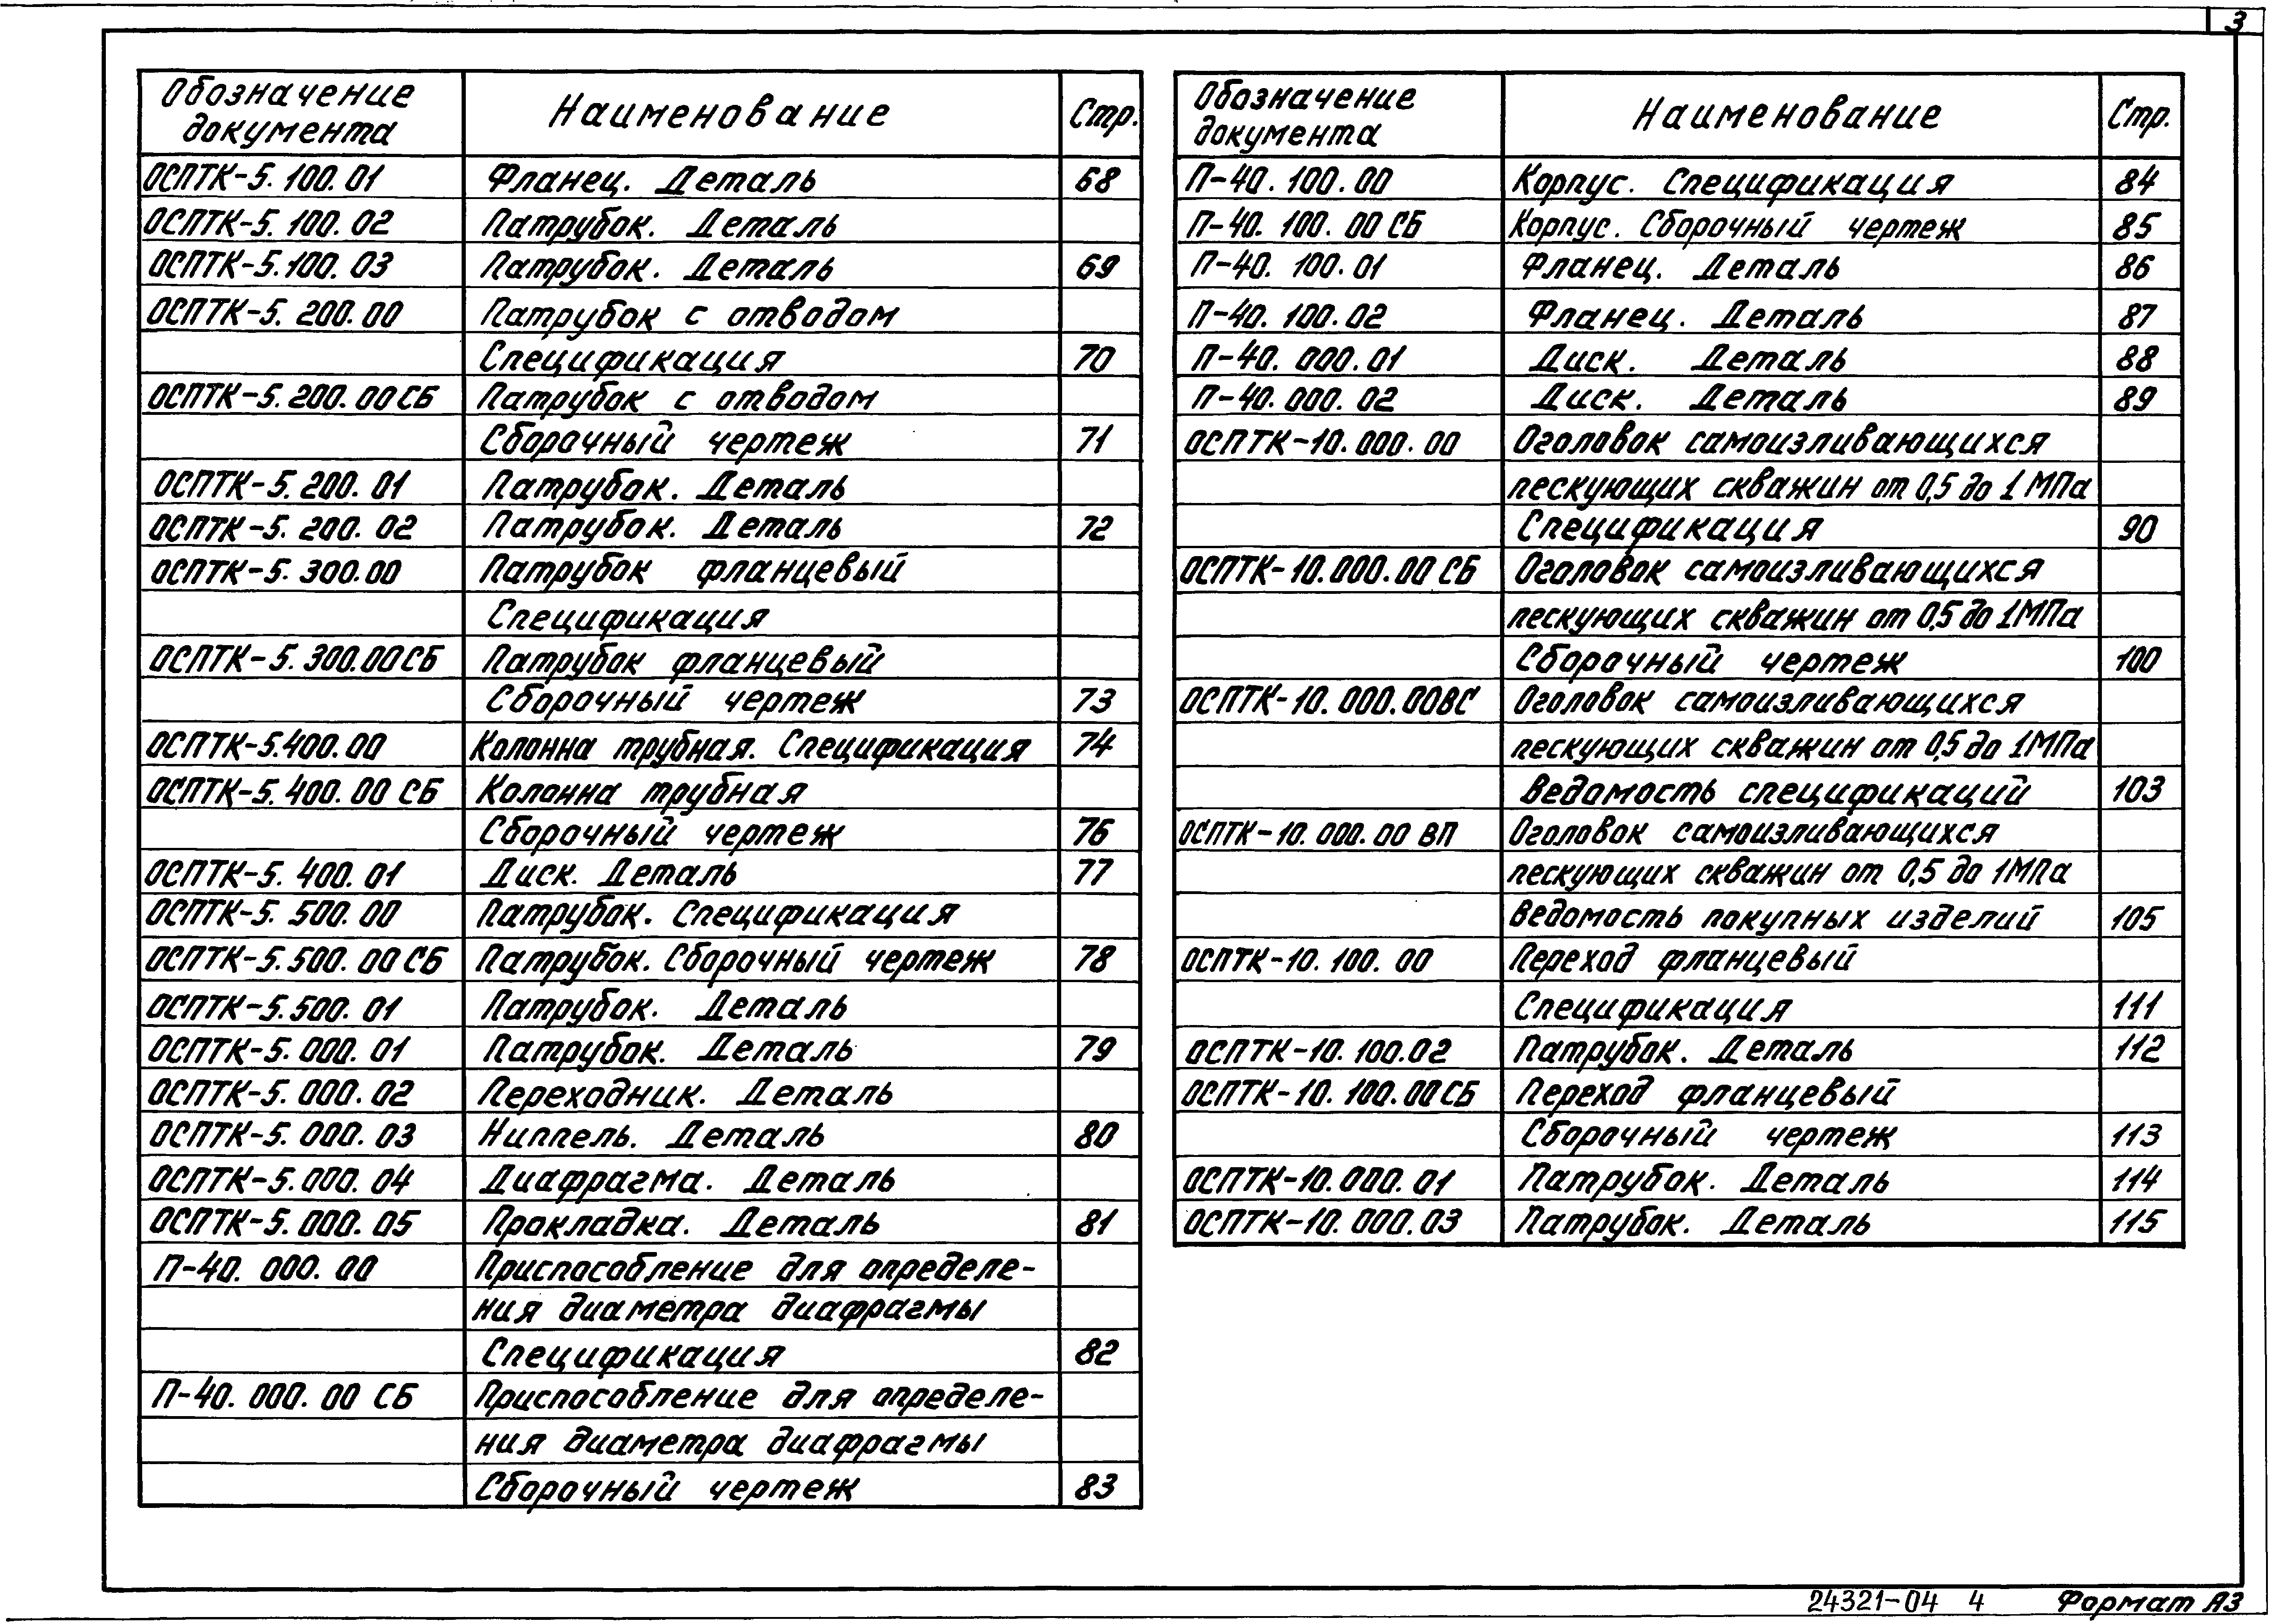 3
Обозначение документа Наименование Стр.
ОСПТК-5.100.01 Фланец. Деталь 68
ОСПТК-5.100.02 Патрубок. Деталь
ОСПТК-5.100.03 Патрубок. Деталь 69
ОСПТК-5.200.00 Патрубок с отводом
Спецификация 70
ОСПТК-5.200.00СБ Патрубок с отводом
Сборочный чертеж 71
ОСПТК-5.200.01 Патрубок. Деталь
ОСПТК-5.200.02 Патрубок. Деталь 72
ОСПТК-5.300.00 Патрубок фланцевый
Спецификация
ОСПТК-5.300.00СБ Патрубок фланцевый
Сборочный чертеж 73
ОСПТК-5.400.00 Колонна трубная. Спецификация 74
ОСПТК-5.400.00 СБ Колонна трубная
Сборочный чертеж 76
ОСПТК-5.400.01 Диск. Деталь 77
ОСПТК-5.500.00 Патрубок. Спецификация
ОСПТК-5.500.00СБ Патрубок. Сборочный чертеж 78
ОСПТК-5.500.01 Патрубок. Деталь
ОСПТК-5.000.01 Патрубок. Деталь 79
ОСПТК-5.000.02 Переходник. Деталь
ОСПТК-5.000.03 Ниппель. Деталь 80
ОСПТК-5.000.04 Диафрагма. Деталь
ОСПТК-5.000.05 Прокладка. Деталь 81
П-40.000.00 Приспособление для определе-
ния диаметра диафрагмы
Спецификация 82
П-40.000.00 СБ Приспособление для определе-
ния диаметра диафрагмы
Сборочный чертеж 83
Обозначение документа Наименование Стр.
П-40.100.00 Корпус. Спецификация 84
П-40.100.00 СБ Корпус. Сборочный чертеж 85
П-40.100.01 Фланец. Деталь 86
П-40.100.02 Фланец. Деталь 87
П-40.000.01 Диск. Деталь 88
П-40.000.02 Диск. Деталь 89
ОСПТК-10.000.00 Оголовок самоизливающихся
пескующих скважин от 0,5 до 1 МПа
Спецификация 90
ОСПТК-10.000.00 СБ Оголовок самоизливающихся
пескующих скважин от 0,5 до 1МПа
Сборочный чертеж 100
ОСПТК-10.000.00ВС Оголовок самоизливающихся
пескующих скважин от 0,5 до 1МПа
Ведомость спецификаций 103
ОСПТК-10.000.00 ВП Оголовок самоизливающихся
пескующих скважин от 0,5 до 1МПа
Ведомость покупных изделий 105
ОСПТК-10.100.00 Переход фланцевый
Спецификация 111
ОСПТК-10.100.02 Патрубок. Деталь 112
ОСПТК-10.100.00СБ Переход фланцевый
Сборочный чертеж 113
ОСПТК-10.000.01 Патрубок. Деталь 114
ОСПТК-10.000.03 Патрубок. Деталь 115
24321-04 4 Формат А3